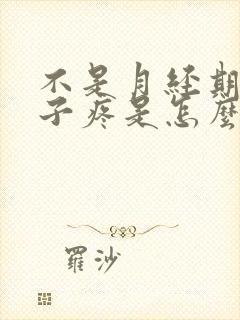 不是月经期
子疼是怎麼
羅沙